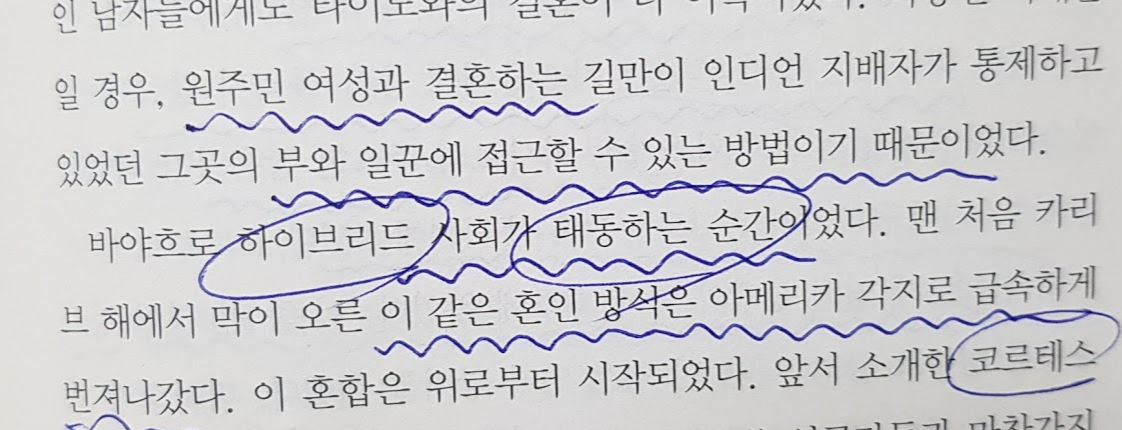 인 남자들에게도 타이노와의 결혼이 더
일 경우, 원주민 여성과 결혼하는 길만이 인디언 지배자가 통제하고
있었던 그곳의 부와 일꾼에 접근할 수 있는 방법이기 때문이었다.
바야흐로 하이브리드 사회가 태동하는 순간이었다. 맨 처음 카리
브 해에서 막이 오른 이 같은 혼인 방식은 아메리카 각지로 급속하게
번져나갔다. 이 혼합은 위로부터 시작되었다. 앞서 소개한 코르테스
마찬가지